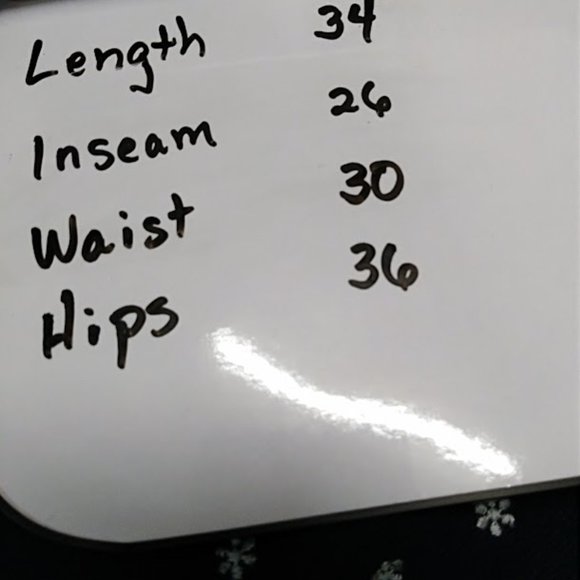 Length 34
Inseam 26
Waist 30
Hips 36